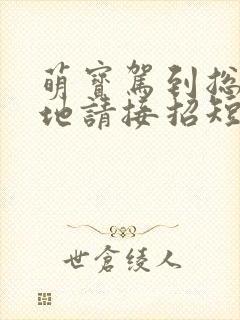 萌寶駕到總
地請接招短
世倉绫人